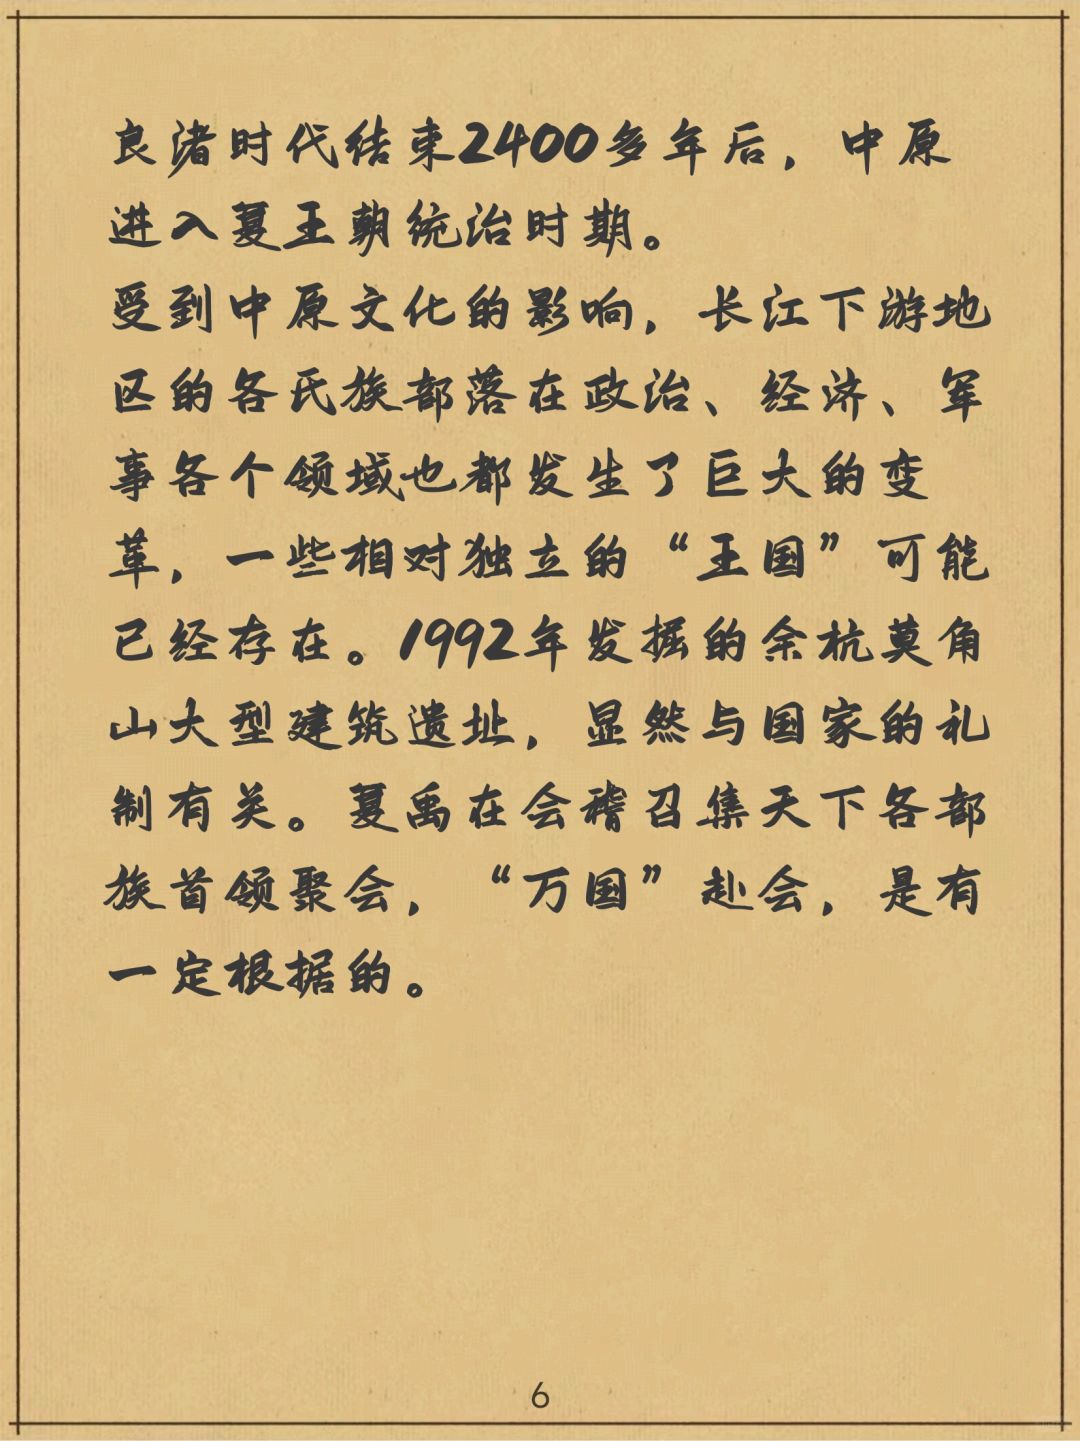 良渚时代结束2400多年后，中原
进入夏王朝统治时期。
受到中原文化的影响，长江下游地
区的各氏族部落在政治、经济、军
事各个领域也都发生了巨大的变
革，一些相对独立的“王国”可能
已经存在。1992年发掘的余杭莫角
山大型建筑遗址，显然与国家的礼
制有关。夏禹在会稽召集天下各部
族首领聚会，“万国”赴会，是有
一定根据的。
6